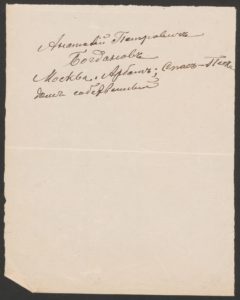 Анатолій Петровичъ
Богдановъ
Москва, Арбатъ; Спасъ-Пес
домъ собственный